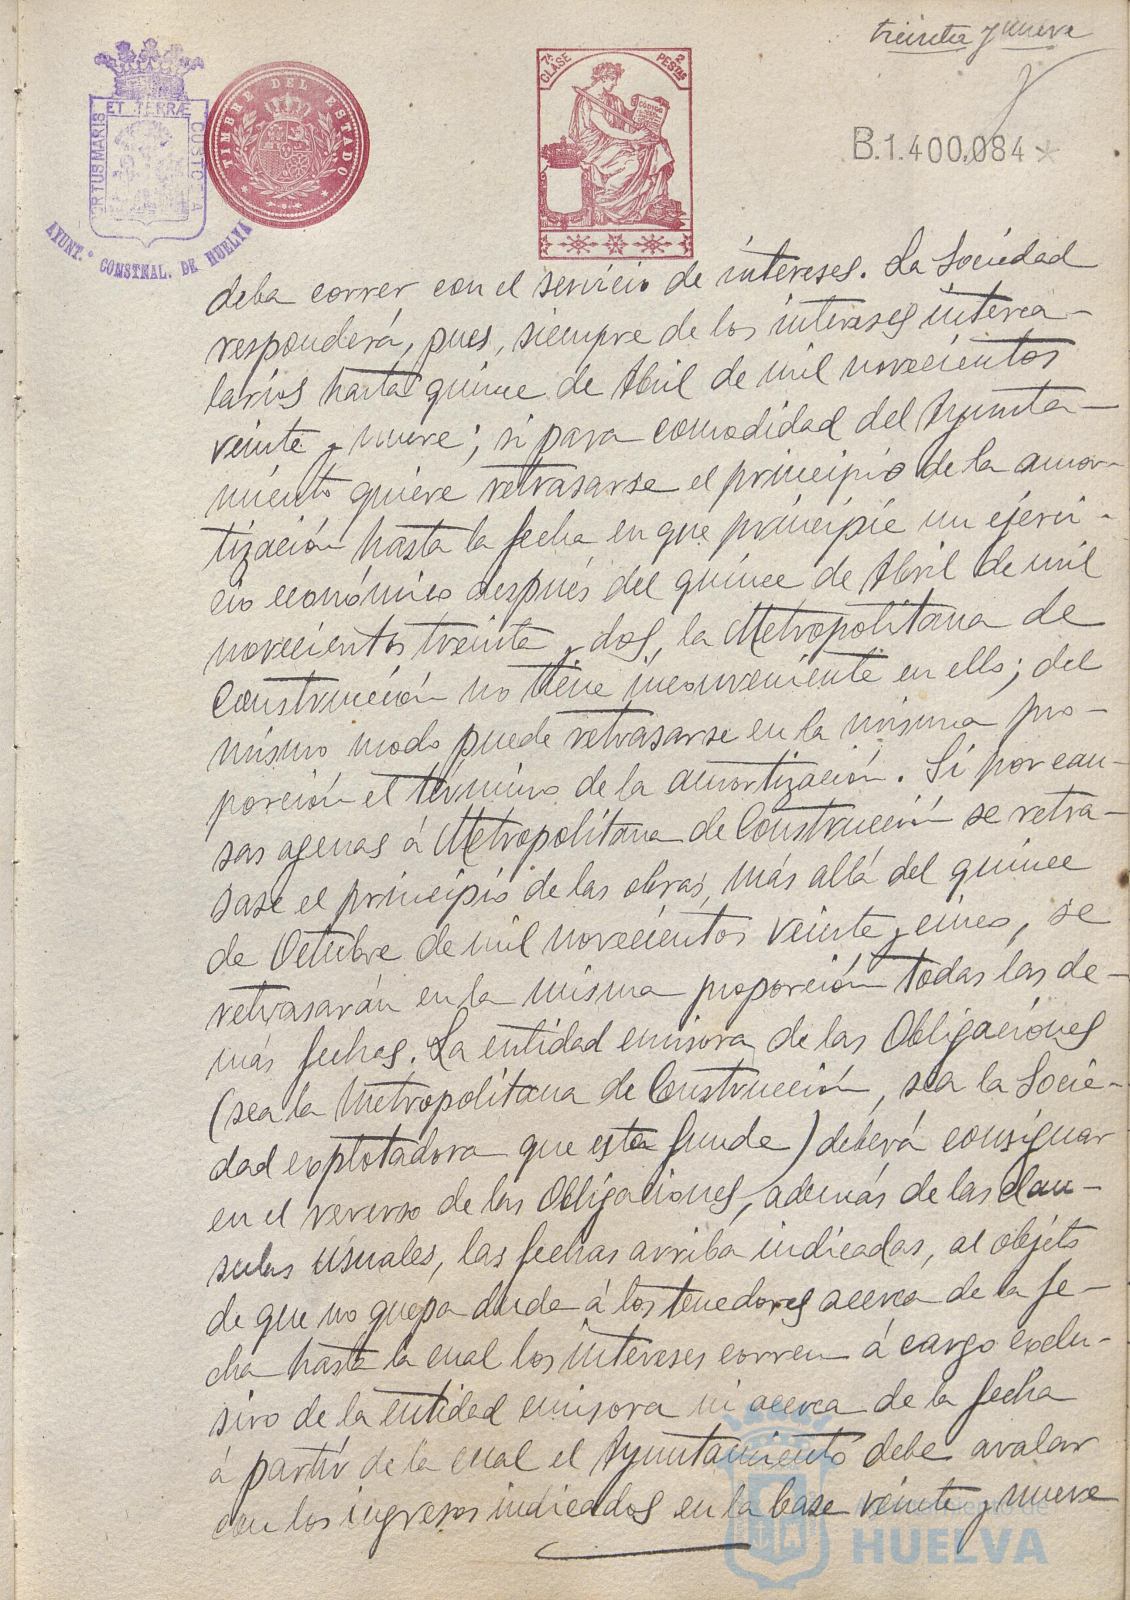 treinta y nueve
7ª CLASE
2 PESTAS
CODIGO
TIMBRE DEL ESTADO
PORTUS MARIS ET TERRÆ CUSTODIA
AYUNT.º CONSTNAL. DE HUELVA
B.1.400,084
deba correr con el servicio de intereses. La Sociedad
responderá, pues, siempre de los intereses interca-
larios hasta quince de Abril de mil novecientos
veinte y nueve; si para comodidad del Ayunta-
miento quiere retrasarse el principio de la amor-
tización hasta la fecha en que principie un ejerci-
cio económico después del quince de Abril de mil
novecientos treinta y dos, la Metropolitana de
Construcción no tiene inconveniente en ello; del
mismo modo puede retrasarse en la misma pro-
porción el término de la amortización. Si por cau-
sas agenas á Metropolitana de Construcción se retra-
sase el principio de las obras, más allá del quince
de Octubre de mil novecientos veinte y cinco, se
retrasarán en la misma proporción todas las de-
más fechas. La entidad emisora de las Obligaciones
(sea la Metropolitana de Construcción, sea la Socie-
dad explotadora que esta funde) deberá consignar
en el reverso de las Obligaciones, además de las clau-
sulas usuales, las fechas arriba indicadas, al objeto
de que no quepa duda á los tenedores acerca de la fe-
cha hasta la cual los intereses corren á cargo exclu-
sivo de la entidad emisora ni acerca de la fecha
á partir de la cual el Ayuntamiento debe avalar
con los ingresos indicados en la base veinte y nueve
Ayuntamiento de
HUELVA